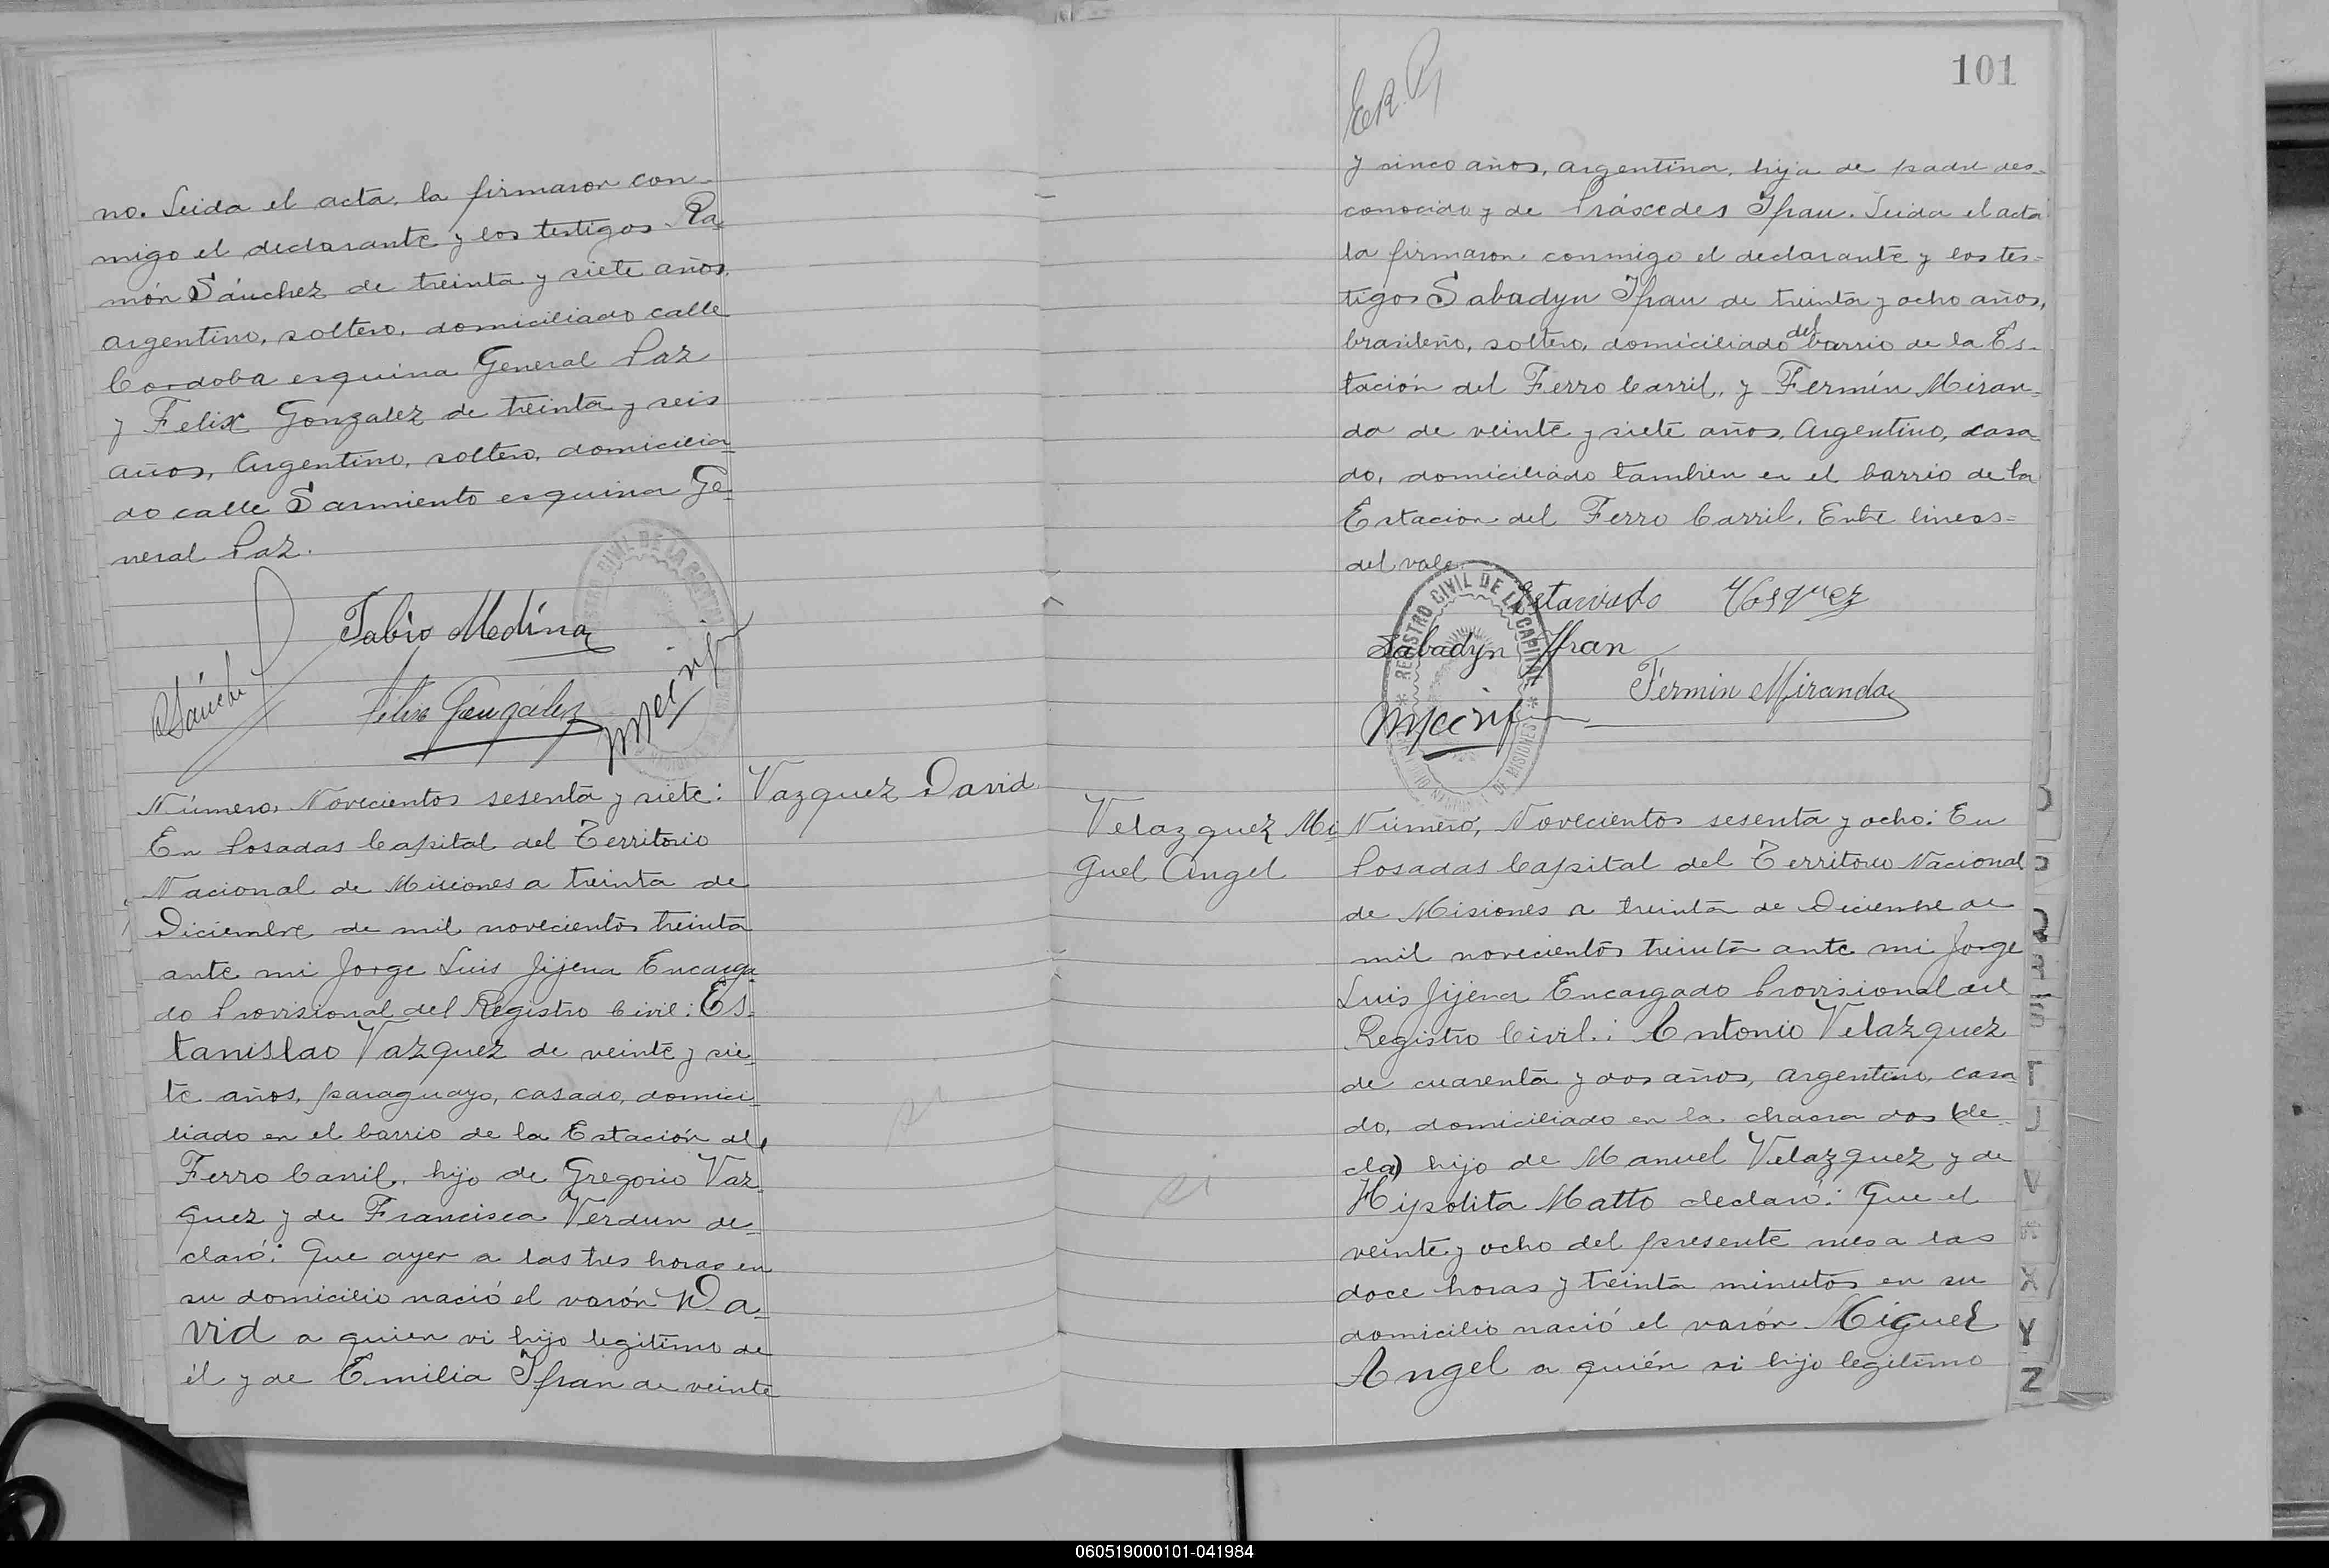 no. Leida el acta, la firmaron con-
migo el declarante y los testigos Ra-
món Sánchez de treinta y siete años,
argentino, soltero, domiciliado calle
Cordoba esquina General Paz
y Felix Gonzalez de treinta y seis
años, Argentino, soltero, domicilia-
do calle Sarmiento esquina Ge-
neral Paz.
Fabio Medina
RSánchez
Félix González
Número, Novecientos sesenta y siete:
En Posadas Capital del Territorio
Nacional de Misiones a treinta de
Diciembre de mil novecientos treinta
ante mi Jorge Luis Jijena Encarga-
do Provisional del Registro Civil: Es-
tanislao Vazquez de veinte y sie-
te años, paraguayo, casado, domici-
liado en el barrio de la Estación del
Ferro Carril, hijo de Gregorio Vaz-
quez y de Francisca Verdun de-
claró: Que ayer a las tres horas en
su domicilio nació el varón Da-
vid a quien vi hijo legitimo de
él y de Emilia Ifran de veinte
Vazquez David
101
y cinco años, argentina, hija de padre des-
conocido y de Práxcedes Ifran. Leida el acta
la firmaron conmigo el declarante y los tes-
tigos Sabadyn Ifran de treinta y ocho años,
brasileño, soltero, domiciliado del barrio de la Es-
tación del Ferro Carril, y Fermín Miran-
da de veinte y siete años, Argentino, casa-
do, domiciliado tambien en el barrio de la
Estacion del Ferro Carril. Entre lineas=
del vale.
Vasquez
Sabadyn Ifran
Fermin Miranda
REGISTRO CIVIL DE LA CAPITAL
Velazquez Mi
guel Angel
Número, Novecientos sesenta y ocho: En
Posadas Capital del Territorio Nacional
de Misiones a treinta de Diciembre de
mil novecientos treinta ante mi Jorge
Luis Jijena Encargado Provisional del
Registro Civil.: Antonio Velazquez
de cuarenta y dos años, argentino, casa
do, domiciliado en la chacra dos (de-
cla) hijo de Manuel Velazquez y de
Hipolita Matto declaró: Que el
veinte y ocho del presente mes a las
doce horas y treinta minutos en su
domicilio nació el varón Miguel
Angel a quién vi hijo legitimo
T
J
V
X
Y
Z
060519000101-041984